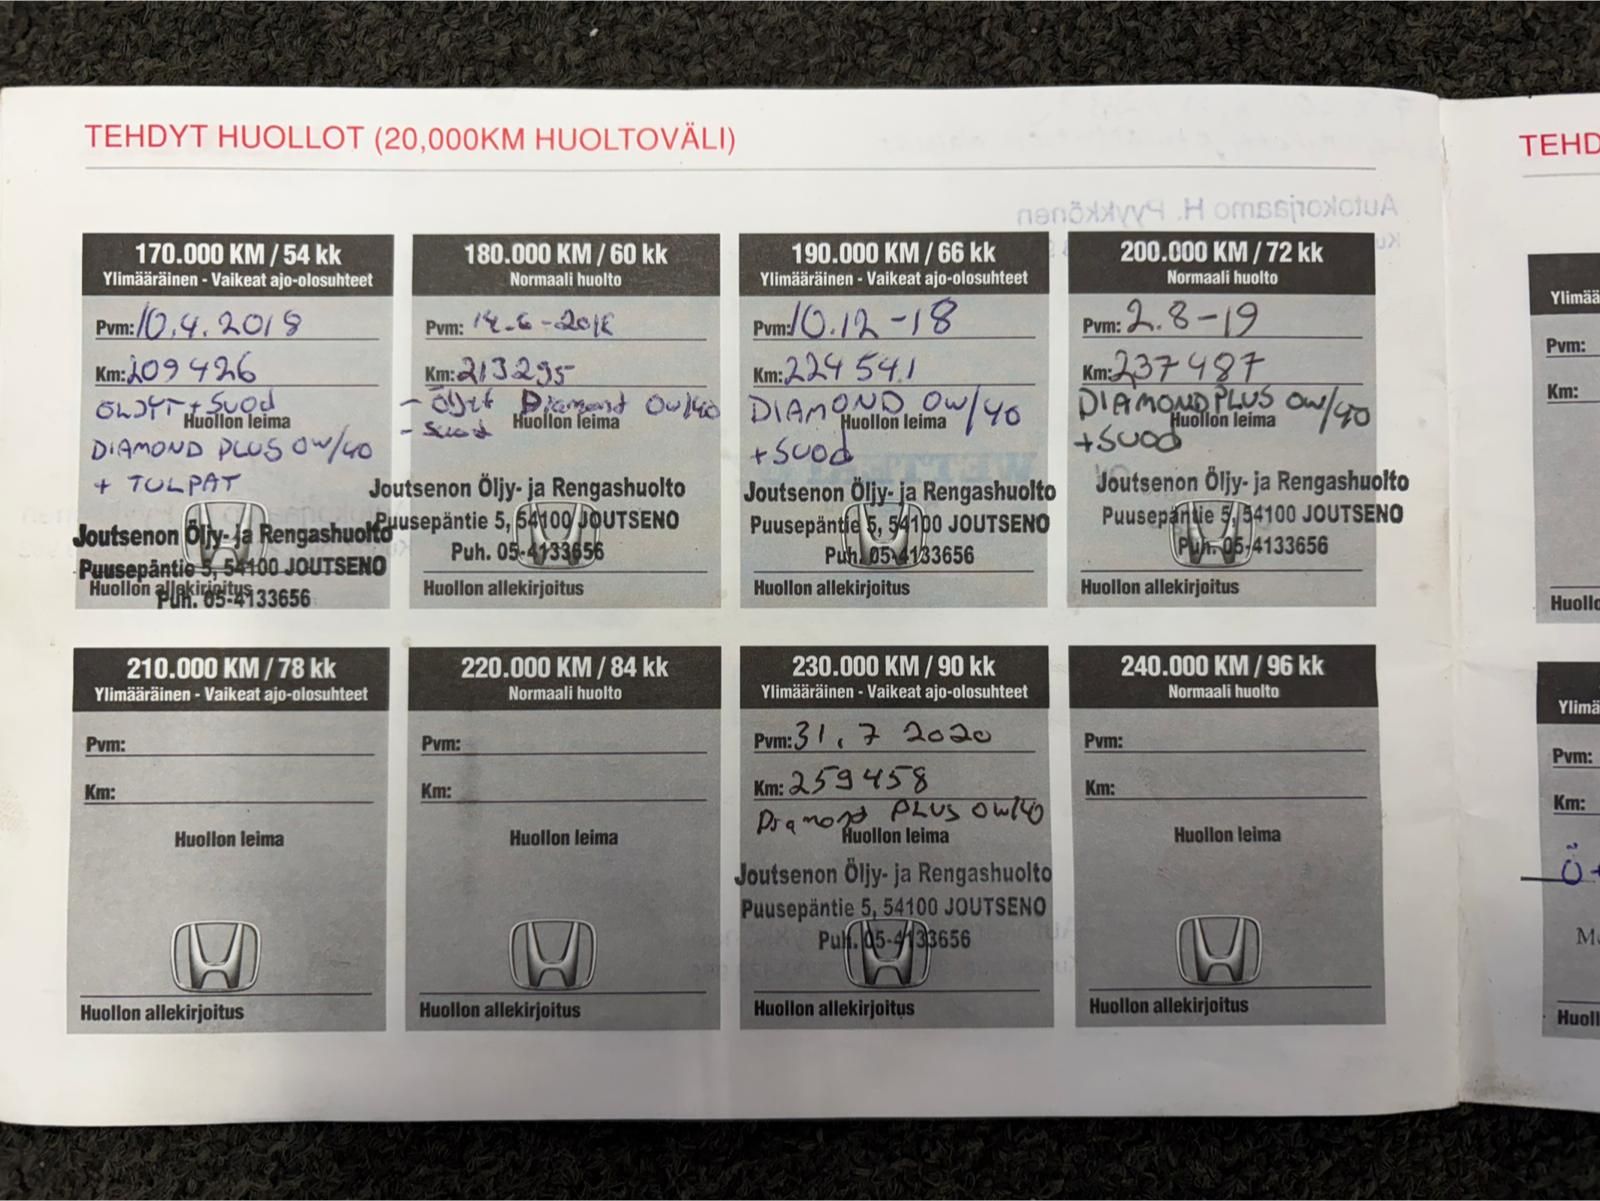 TEHDYT HUOLLOT (20,000KM HUOLTOVÄLI)
TEHD
Autokorjaamo H. Pyykkönen
170.000 KM / 54 kk
Ylimääräinen - Vaikeat ajo-olosuhteet
Pvm: 10.4.2018
Km: 209426
ÖLJYT + SUOD
Huollon leima
DIAMOND PLUS 0W/40
+ TULPAT
Joutsenon Öljy- ja Rengashuolto
Puusepäntie 5, 54100 JOUTSENO
Huollon allekirjoitus
Puh. 05-4133656
180.000 KM / 60 kk
Normaali huolto
Pvm: 14.6-2018
Km: 213295
- Öljyt Diamond 0W/40
- Suod
Huollon leima
Joutsenon Öljy- ja Rengashuolto
Puusepäntie 5, 54100 JOUTSENO
Puh. 05-4133656
Huollon allekirjoitus
190.000 KM / 66 kk
Ylimääräinen - Vaikeat ajo-olosuhteet
Pvm: 10.12-18
Km: 224541
DIAMOND 0W/40
Huollon leima
+SUOD
Joutsenon Öljy- ja Rengashuolto
Puusepäntie 5, 54100 JOUTSENO
Puh. 05-4133656
Huollon allekirjoitus
200.000 KM / 72 kk
Normaali huolto
Pvm: 2.8-19
Km: 237487
DIAMOND PLUS 0W/40
Huollon leima
+SUOD
Joutsenon Öljy- ja Rengashuolto
Puusepäntie 5, 54100 JOUTSENO
Puh. 05-4133656
Huollon allekirjoitus
Ylimää
Pvm:
Km:
Huollo
210.000 KM / 78 kk
Ylimääräinen - Vaikeat ajo-olosuhteet
Pvm:
Km:
Huollon leima
Huollon allekirjoitus
220.000 KM / 84 kk
Normaali huolto
Pvm:
Km:
Huollon leima
Huollon allekirjoitus
230.000 KM / 90 kk
Ylimääräinen - Vaikeat ajo-olosuhteet
Pvm: 31.7 2020
Km: 259458
Diamond PLUS 0W/40
Huollon leima
Joutsenon Öljy- ja Rengashuolto
Puusepäntie 5, 54100 JOUTSENO
Puh. 05-4133656
Huollon allekirjoitus
240.000 KM / 96 kk
Normaali huolto
Pvm:
Km:
Huollon leima
Huollon allekirjoitus
Ylimä
Pvm:
Km:
Huoll